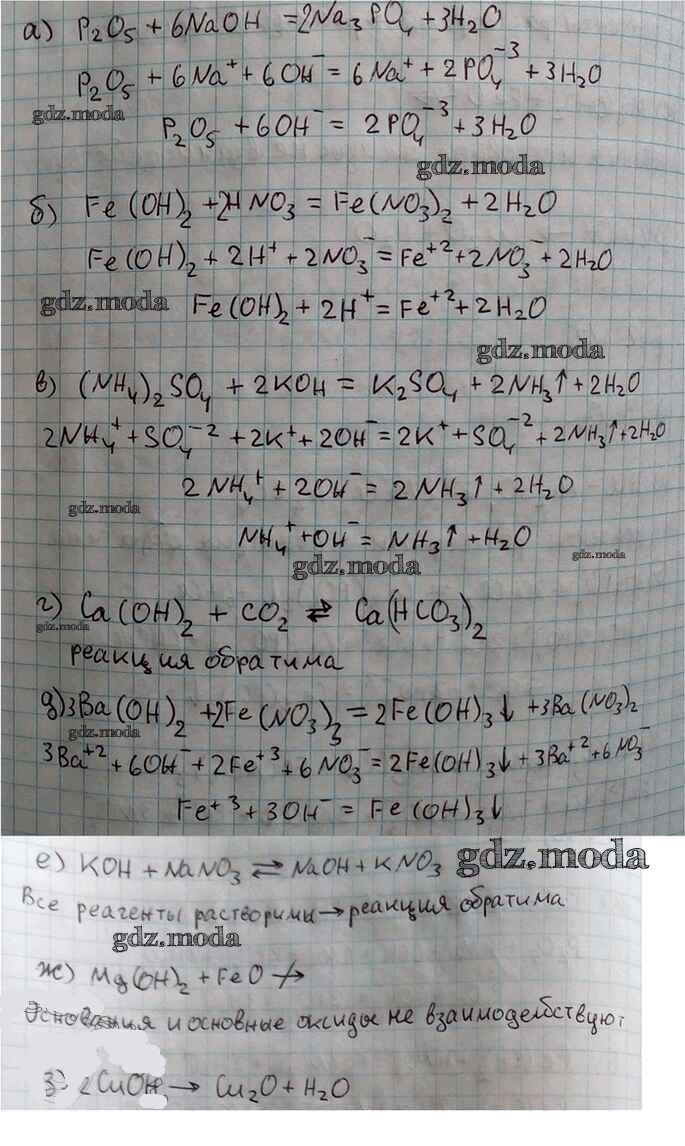 а) P₂O₅ + 6NaOH = 2Na₃PO₄ + 3H₂O
P₂O₅ + 6Na⁺ + 6OH⁻ = 6Na⁺ + 2PO₄⁻³ + 3H₂O
gdz.moda
P₂O₅ + 6OH⁻ = 2PO₄⁻³ + 3H₂O
gdz.moda
б) Fe(OH)₂ + 2HNO₃ = Fe(NO₃)₂ + 2H₂O
Fe(OH)₂ + 2H⁺ + 2NO₃⁻ = Fe⁺² + 2NO₃⁻ + 2H₂O
gdz.moda
Fe(OH)₂ + 2H⁺ = Fe⁺² + 2H₂O
gdz.moda
в) (NH₄)₂SO₄ + 2KOH = K₂SO₄ + 2NH₃↑ + 2H₂O
2NH₄⁺ + SO₄⁻² + 2K⁺ + 2OH⁻ = 2K⁺ + SO₄⁻² + 2NH₃↑ + 2H₂O
2NH₄⁺ + 2OH⁻ = 2NH₃↑ + 2H₂O
gdz.moda
NH₄⁺ + OH⁻ = NH₃↑ + H₂O
gdz.moda
gdz.moda
г) Ca(OH)₂ + CO₂ ⇄ Ca(HCO₃)₂
gdz.moda
реакция обратима
д) 3Ba(OH)₂ + 2Fe(NO₃)₃ = 2Fe(OH)₃↓ + 3Ba(NO₃)₂
gdz.moda
3Ba⁺² + 6OH⁻ + 2Fe⁺³ + 6NO₃⁻ = 2Fe(OH)₃↓ + 3Ba⁺² + 6NO₃⁻
Fe⁺³ + 3OH⁻ = Fe(OH)₃↓
е) KOH + NaNO₃ ⇄ NaOH + KNO₃
gdz.moda
Все реагенты растворимы → реакция обратима
gdz.moda
ж) Mg(OH)₂ + FeO ↛
Основания и основные оксиды не взаимодействуют
з) 2CuOH → Cu₂O + H₂O